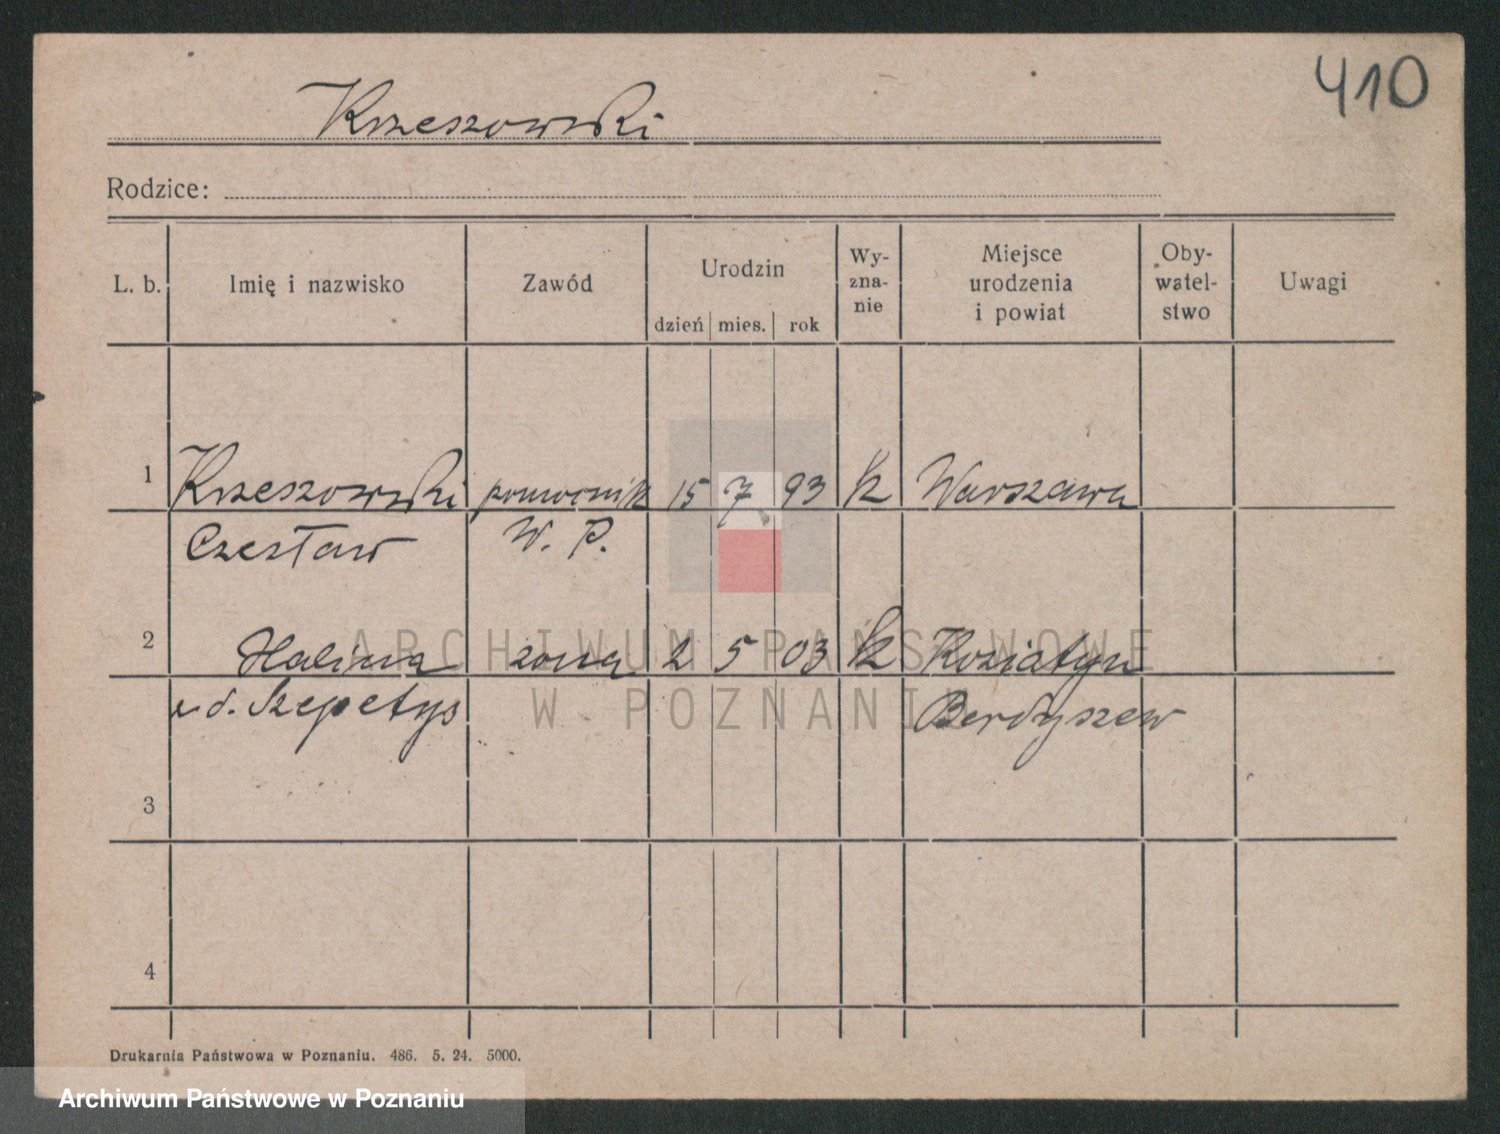 410
Krzeszowski
Rodzice:
L. b.
Imię i nazwisko
Zawód
Urodzin
dzień mies. rok
Wy-
zna-
nie
Miejsce
urodzenia
i powiat
Oby-
watel-
stwo
Uwagi
1 Krzeszowski pomocnik 15 7 93 k Warszawa
Czesław W. P.
2 Halina żona 2 5 03 k Koziatyn
u d. Szepetys Berdyszew
3
4
ARCHIWUM PAŃSTWOWE
W POZNANIU
Drukarnia Państwowa w Poznaniu. 486. 5. 24. 5000.
Archiwum Państwowe w Poznaniu